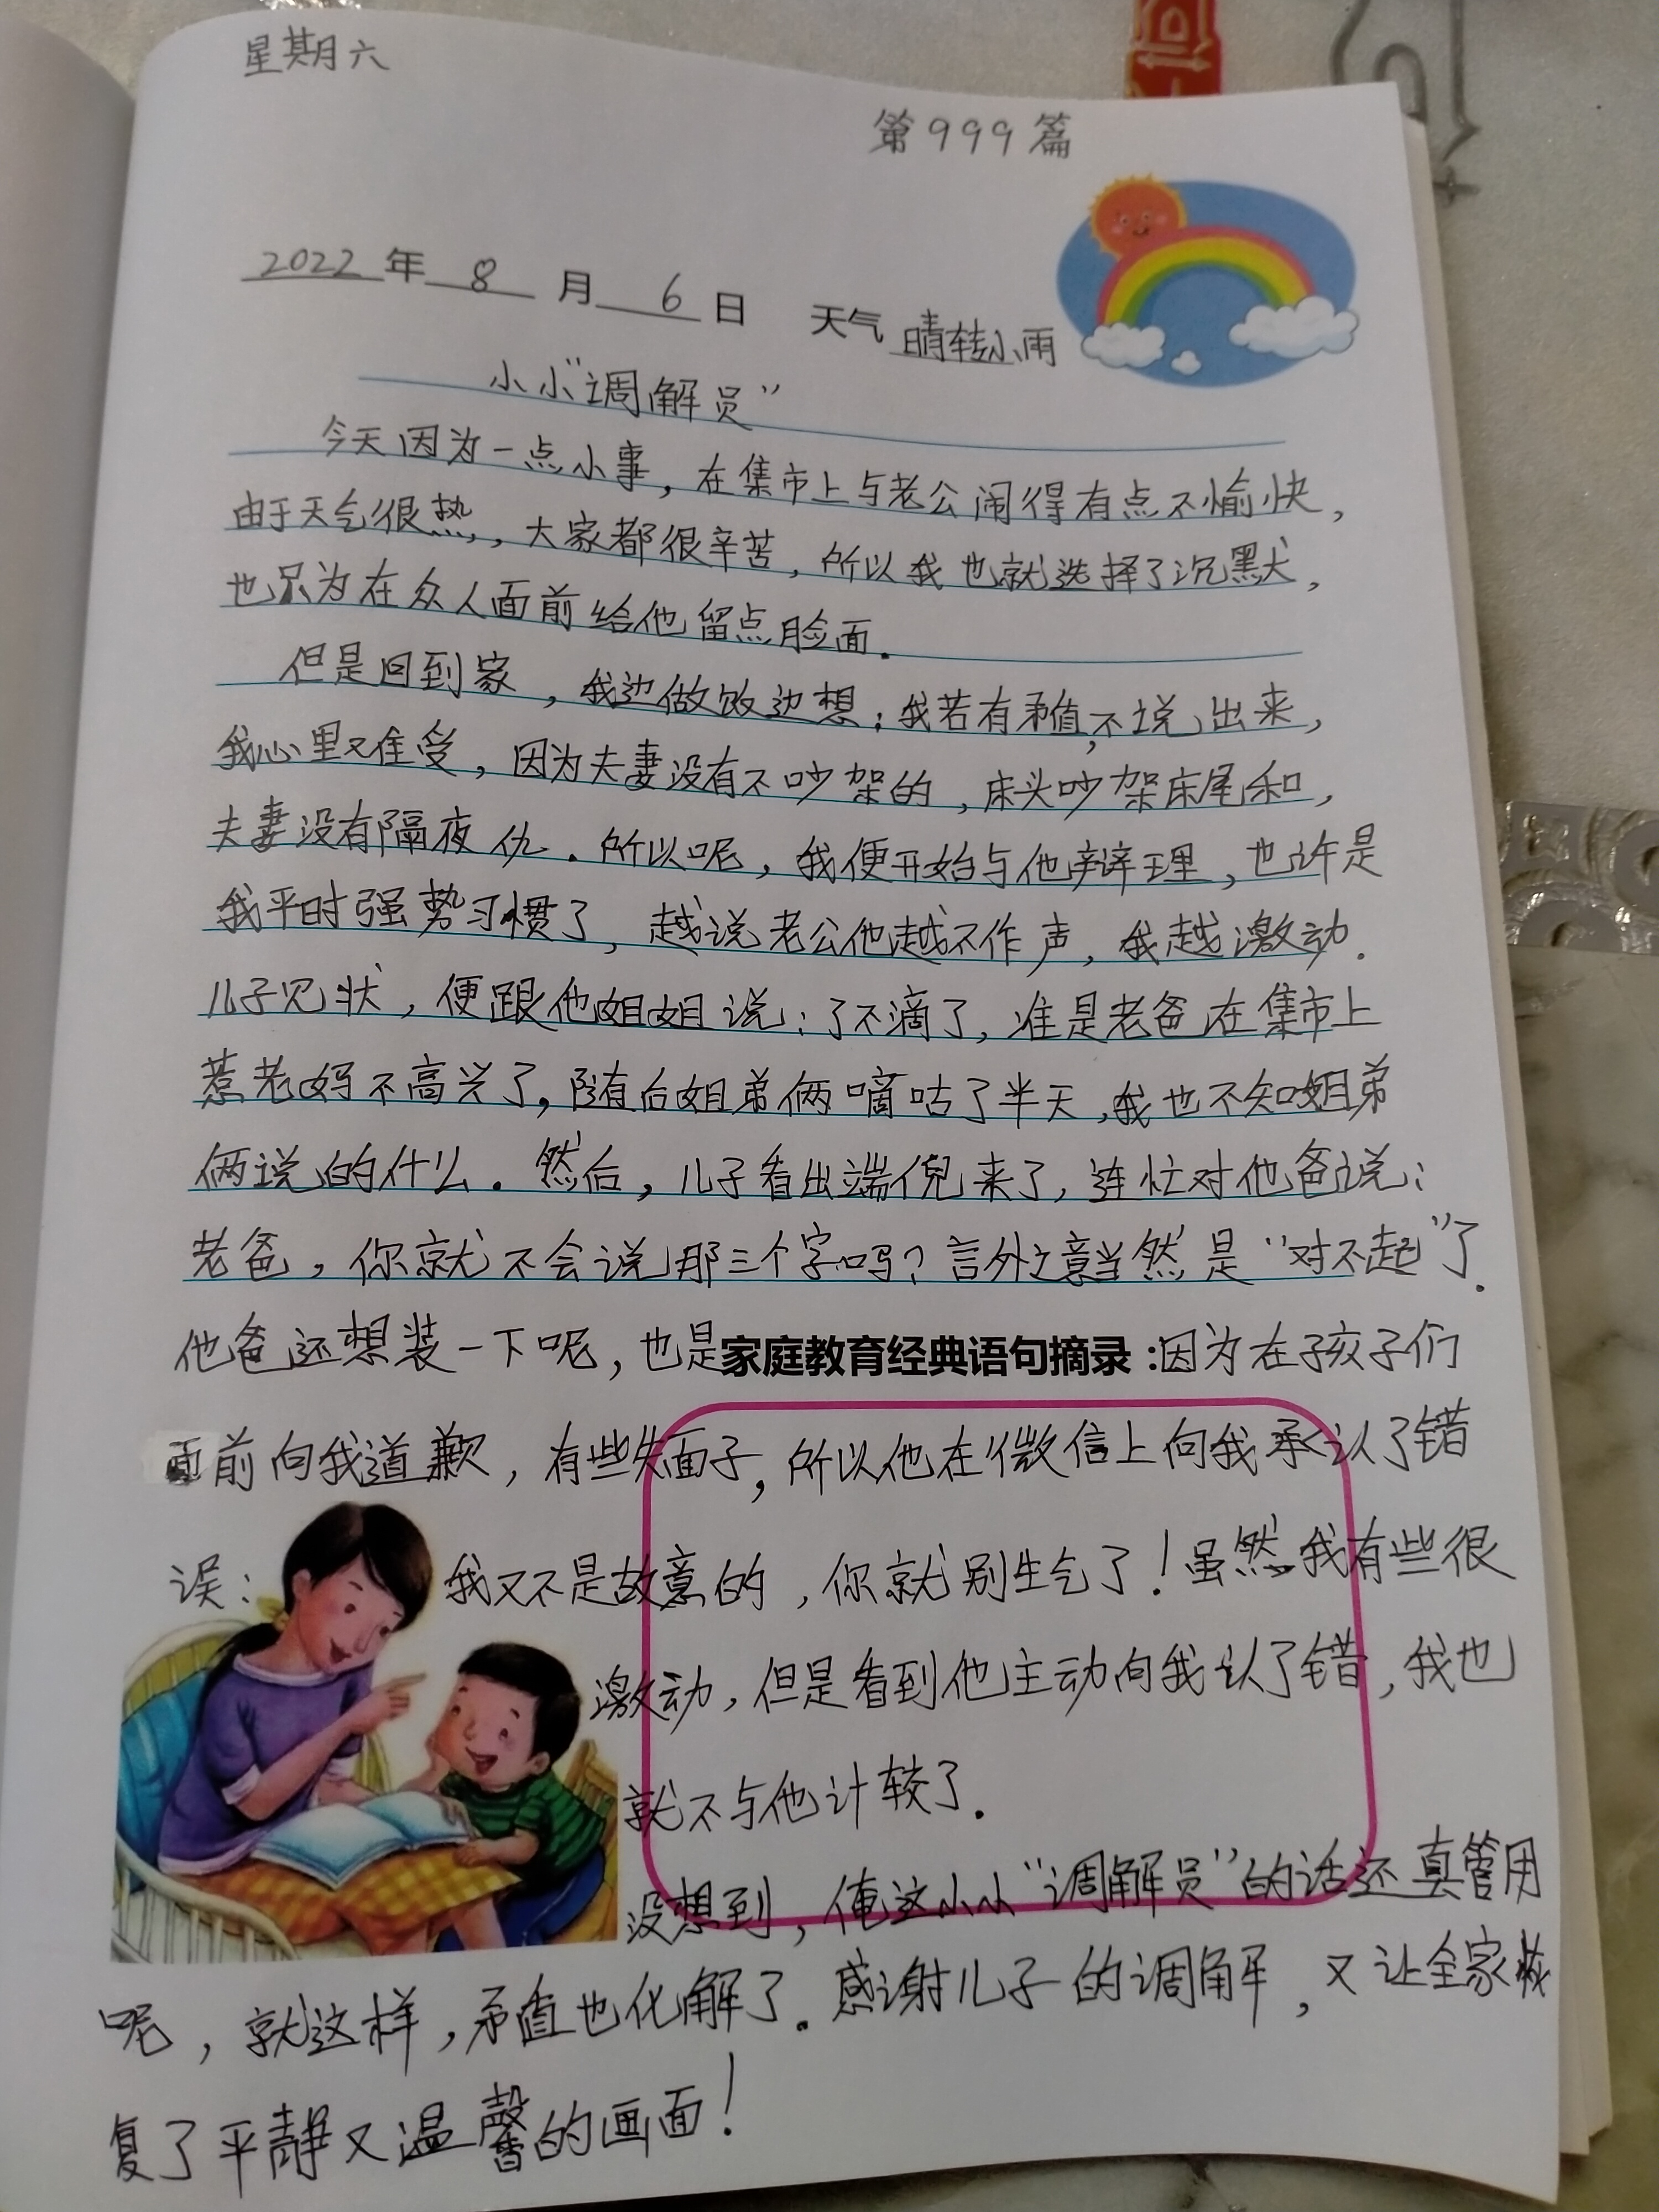 星期六
第999篇
2022年8月6日 天气 晴转小雨
小小“调解员”
今天因为一点小事，在集市上与老公闹得有点不愉快，
由于天气很热，大家都很辛苦，所以我也就选择了沉默，
也只为在众人面前给他留点脸面.
但是回到家，我边做饭边想：我若有矛盾，不说出来，
我心里又难受，因为夫妻没有不吵架的，床头吵架床尾和，
夫妻没有隔夜仇.所以呢，我便开始与他辩理，也许是
我平时强势习惯了，越说老公他越不作声，我越激动.
儿子见状，便跟他姐姐说：了不滴了，准是老爸在集市上
惹老妈不高兴了，随后姐弟俩嘀咕了半天，我也不知姐弟
俩说的什么.然后，儿子看出端倪来了，连忙对他爸说：
老爸，你就不会说那三个字吗？言外之意当然是“对不起”了.
他爸还想装一下呢，也是家庭教育经典语句摘录：因为在孩子们
面前向我道歉，有些失面子，所以他在微信上向我承认了错
误：我又不是故意的，你就别生气了！虽然我有些很
激动，但是看到他主动向我认了错，我也
就不与他计较了.
没想到，俺这小小“调解员”的话还真管用
呢，就这样，矛盾也化解了.感谢儿子的调解，又让全家恢
复了平静又温馨的画面！